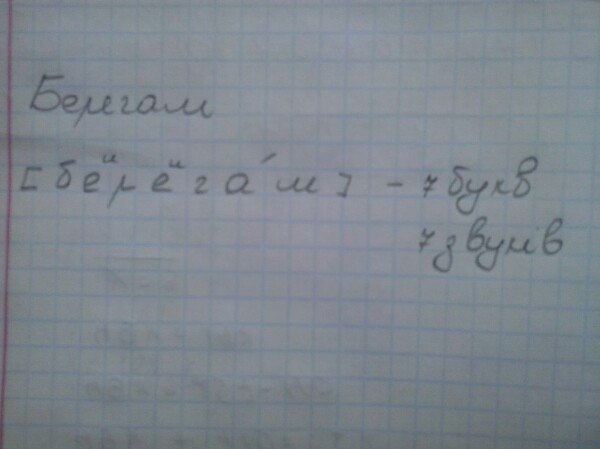 Берегам
[бе^ире^ига́м] - 7 букв
7 звуков